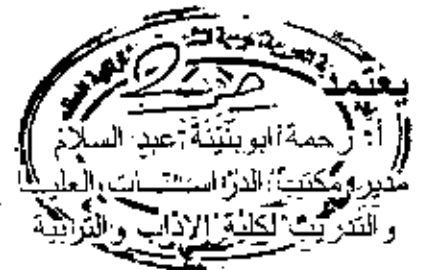 يعتمد
أ. رحمة ابوبنينة عبد السلام
مدير مكتب الدراسات العليا
والتدريب لكلية الاداب والتربية